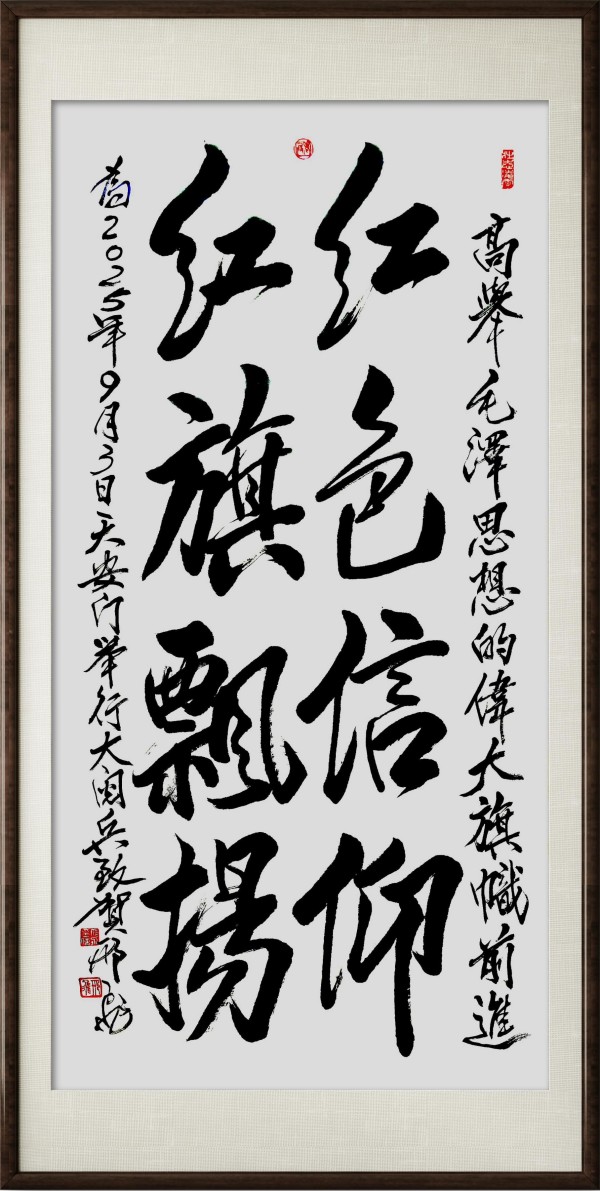 高舉毛澤思想的偉大旗幟前進
红色信仰
红旗飘揚
為2025年9月3日天安门举行大阅兵致賀邢